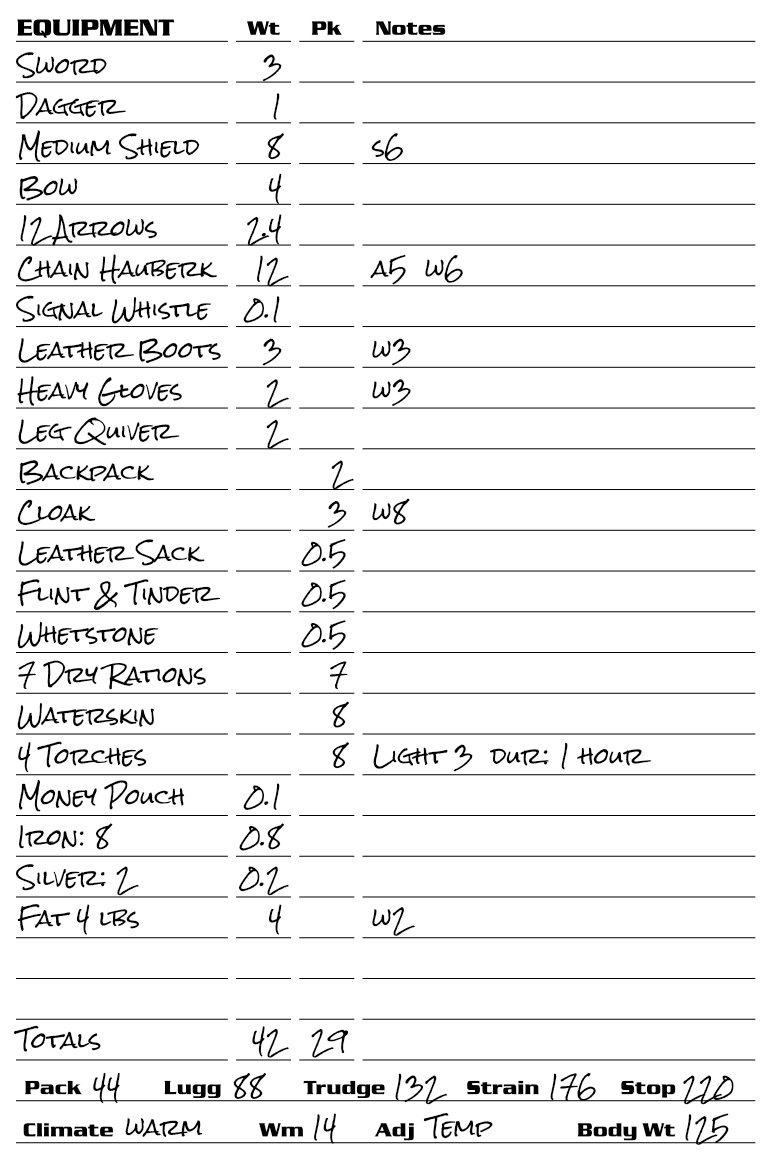 EQUIPMENT Wt Pk Notes
SWORD 3
DAGGER 1
MEDIUM SHIELD 8 S6
BOW 4
12 ARROWS 2.4
CHAIN HAUBERK 12 A5 W6
SIGNAL WHISTLE 0.1
LEATHER BOOTS 3 W3
HEAVY GLOVES 2 W3
LEG QUIVER 2
BACKPACK 2
CLOAK 3 W8
LEATHER SACK 0.5
FLINT & TINDER 0.5
WHETSTONE 0.5
7 DRY RATIONS 7
WATERSKIN 8
4 TORCHES 8 LIGHT 3 DUR: 1 HOUR
MONEY POUCH 0.1
IRON: 8 0.8
SILVER: 2 0.2
FAT 4 LBS 4 W2
TOTALS 42 29
Pack 44 Lugg 88 Trudge 132 Strain 176 Stop 220
Climate WARM Wm 14 Adj TEMP Body Wt 125